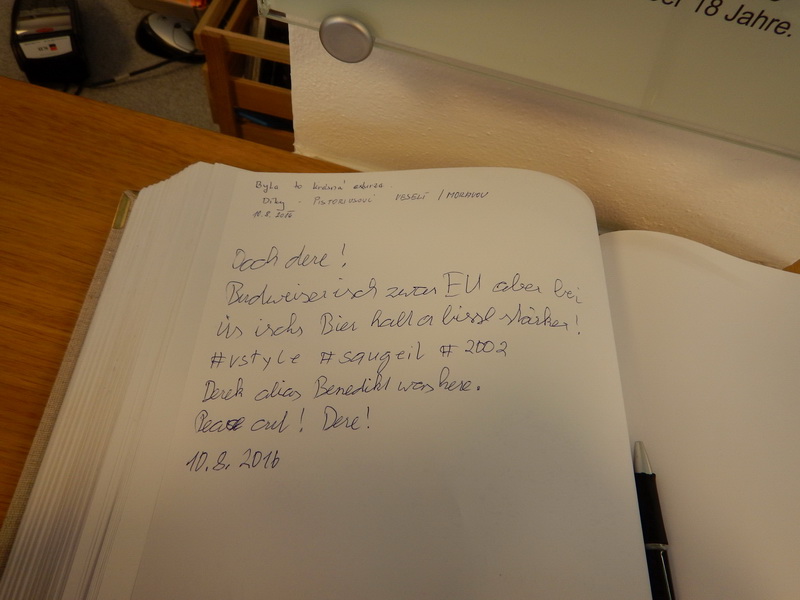 18 Jahre.
Byla to krásná exkurze.
Díky - Pistoriusovi Veselí / Moravou
10.8.2016
Doch dere!
Budweiser isch zwar EU aber bei
üs ischs Bier halt a bissl stärker!
#vstyle #saugeil #2002
Derek alias Benedikt was here.
Peace out! Dere!
10.8.2016